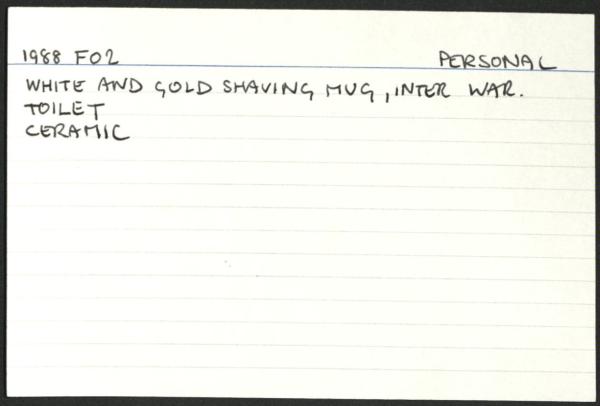 1988 F02 PERSONAL
WHITE AND GOLD SHAVING MUG, INTER WAR.
TOILET
CERAMIC